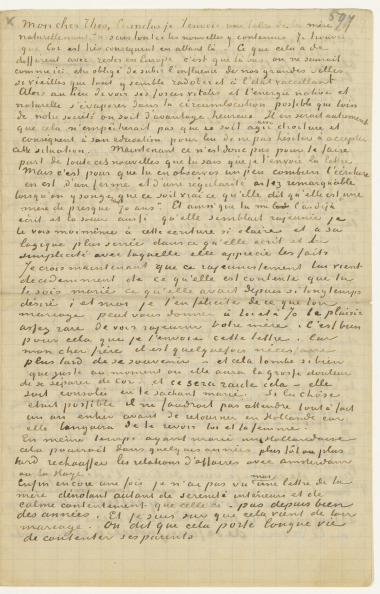 597
Mon cher Theo, Ci inclus je t'envoie une lettre de la mère
naturellement tu sais toutes les nouvelles y contenues. Je trouve
que Cor est très conséquent en allant là. Ce que cela a de
différent avec rester en Europe c'est que là bas on ne saurait
comme ici être obligé de subir l'influence de nos grandes villes
si vieilles que tout y semble radoter et à l'état vacillant
Alors au lieu de voir ses forces vitales et l'énergie native et
naturelle s'évaporer dans la circumlocution possible que loin
de notre société on soit davantage heureux. Il en serait autrement
que cela n'empêcherait pas que ce soit agir avec droiture et
conséquent à son éducation pour lui de ne pas hésiter à accepter
cette situation. Maintenant ce n'est donc pas pour te faire
part de toutes ces nouvelles que tu sais que je t'envoie la lettre
Mais c'est pour que tu en observes un peu combien l'écriture
en est d'un ferme et d'une régularité assez remarquable
lorsqu'on y songe que ce soit vrai ce qu'elle dit qu'elle est une
mère de presque 70 ans. Et ainsi que tu me l'as déjà
écrit et la soeur aussi qu'elle semblait rajeunie je
le vois moi même à cette écriture si claire et à sa
logique plus serrée dans ce qu'elle écrit et la
simplicité avec laquelle elle apprécie les faits
Je crois maintenant que ce rajeunissement lui vient
décidemment de ce qu'elle est contente que tu
te sois marié ce qu'elle avait depuis si longtemps
désiré; et moi je t'en félicite de ce que ton
mariage peut vous donner à toi et à Jo le plaisir
assez rare de voir rajeunir votre mère. C'est bien
pour cela que je t'envoie cette lettre. Car
mon cher frère il est quelquefois nécessaire
plus tard de se souvenir – et cela tombe si bien
que juste au moment où elle aura la grosse douleur
de se séparer de Cor – et ce sera raide cela – elle
soit consolée en te sachant marié. Si la chose
était possible il ne faudrait pas attendre tout à fait
un an entier avant de retourner en Hollande car
elle languira de te revoir toi et ta femme.
En même temps ayant marié une Hollandaise
cela pourrait dans quelques années, plus tôt ou plus
tard rechauffer les relations d'affaires avec Amsterdam
ou la Haye.
Enfin encore une fois je n'ai pas vu une lettre de la
mère dénotant autant de sérénité intérieure et de
calme contentement que celle ci – pas depuis bien
des années. Et je suis sûr que cela vient de ton
mariage. On dit que cela porte longue vie
de contenter ses parents